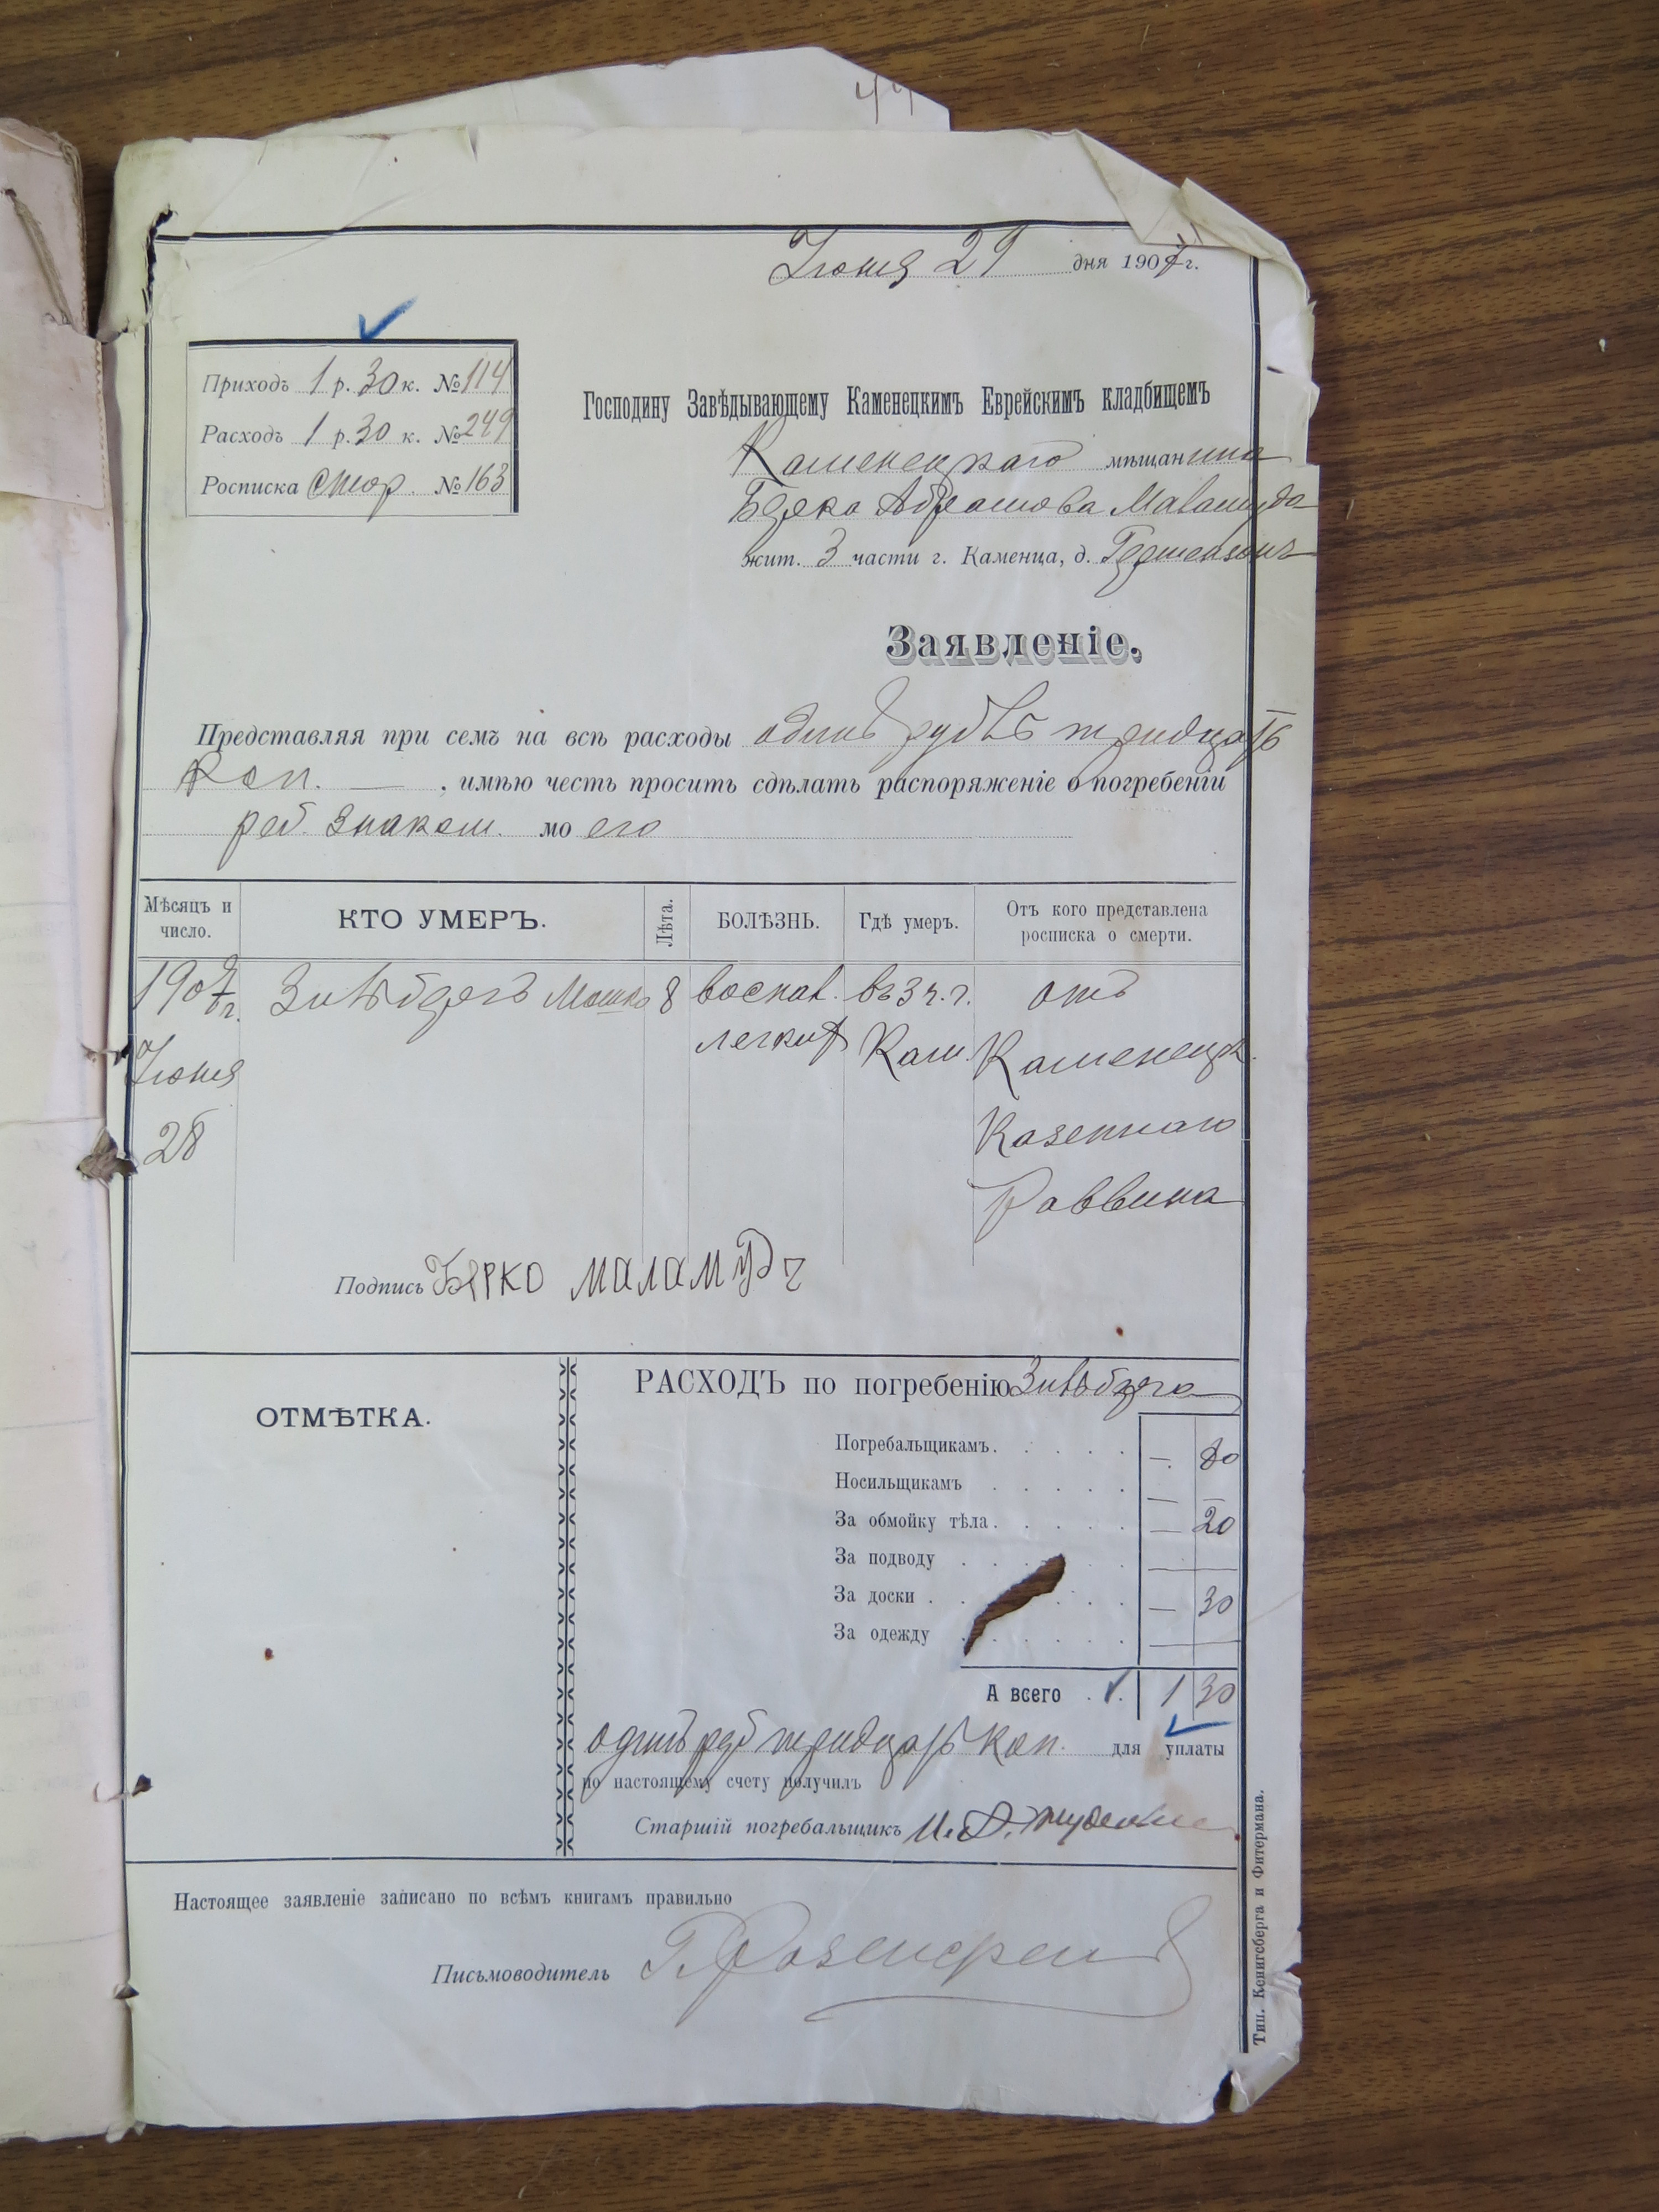 49
Июня 29 дня 1907 г.
Приходъ 1 р. 30 к. № 114
Расходъ 1 р. 30 к. № 249
Росписка стор. № 163
Господину Завѣдывающему Каменецкимъ Еврейскимъ кладбищемъ
Каменецкаго мѣщанина
Берка Абрамова Маламуда
жит. 3 части г. Каменца, д.
Заявленіе.
Представляя при семъ на всѣ расходы одинъ рубль тридцать
коп. — , имѣю честь просить сдѣлать распоряженіе о погребеніи
реб. знаком. мо его
Мѣсяцъ и число.
КТО УМЕРЪ.
Лѣта.
БОЛѢЗНЬ.
Гдѣ умеръ.
Отъ кого представлена росписка о смерти.
1907 г. Зильбергъ Мошко 8 воспал. въ 3 ч. г. отъ
Июня легкихъ Кам. Каменецк.
28 Казеннаго
Раввина
Подпись Берко Маламудъ
ОТМѢТКА.
РАСХОДЪ по погребенію Зильберга
Погребальщикамъ. . . . . —. 80
Носильщикамъ . . . . . — —
За обмойку тѣла . . . . . — 20
За подводу . . . . . — —
За доски . . . . . — 30
За одежду . . . . . —
А всего . . 1 30
одинъ руб тридцать коп. для уплаты
по настоящему счету получилъ
Старшій погребальщикъ
Настоящее заявленіе записано по всѣмъ книгамъ правильно
Письмоводитель
Тип. Кенигсберга и Фитермана.